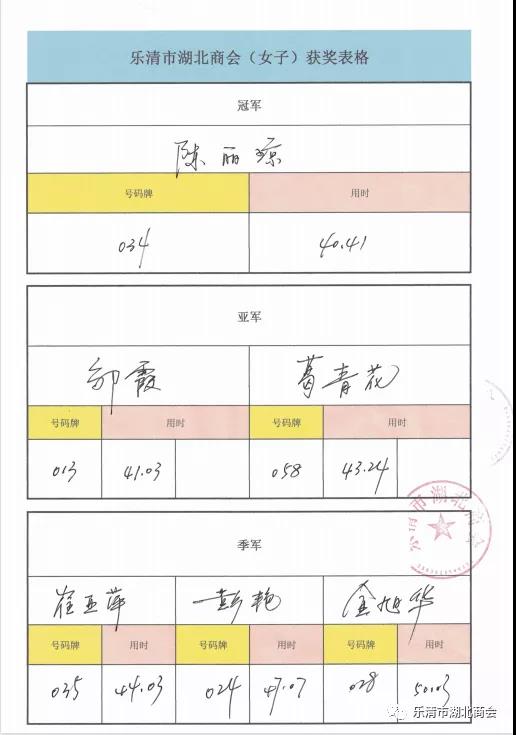 乐清市湖北商会（女子）获奖表格
冠军
陈丽琼
号码牌 用时
034 40.41
亚军
邹霞 葛青花
号码牌 用时 号码牌 用时
013 41.03 058 43.24
季军
崔亚萍 彭艳 金旭华
号码牌 用时 号码牌 用时 号码牌 用时
035 44.03 024 47.07 028 50.03
乐清市湖北商会
乐清市湖北商会